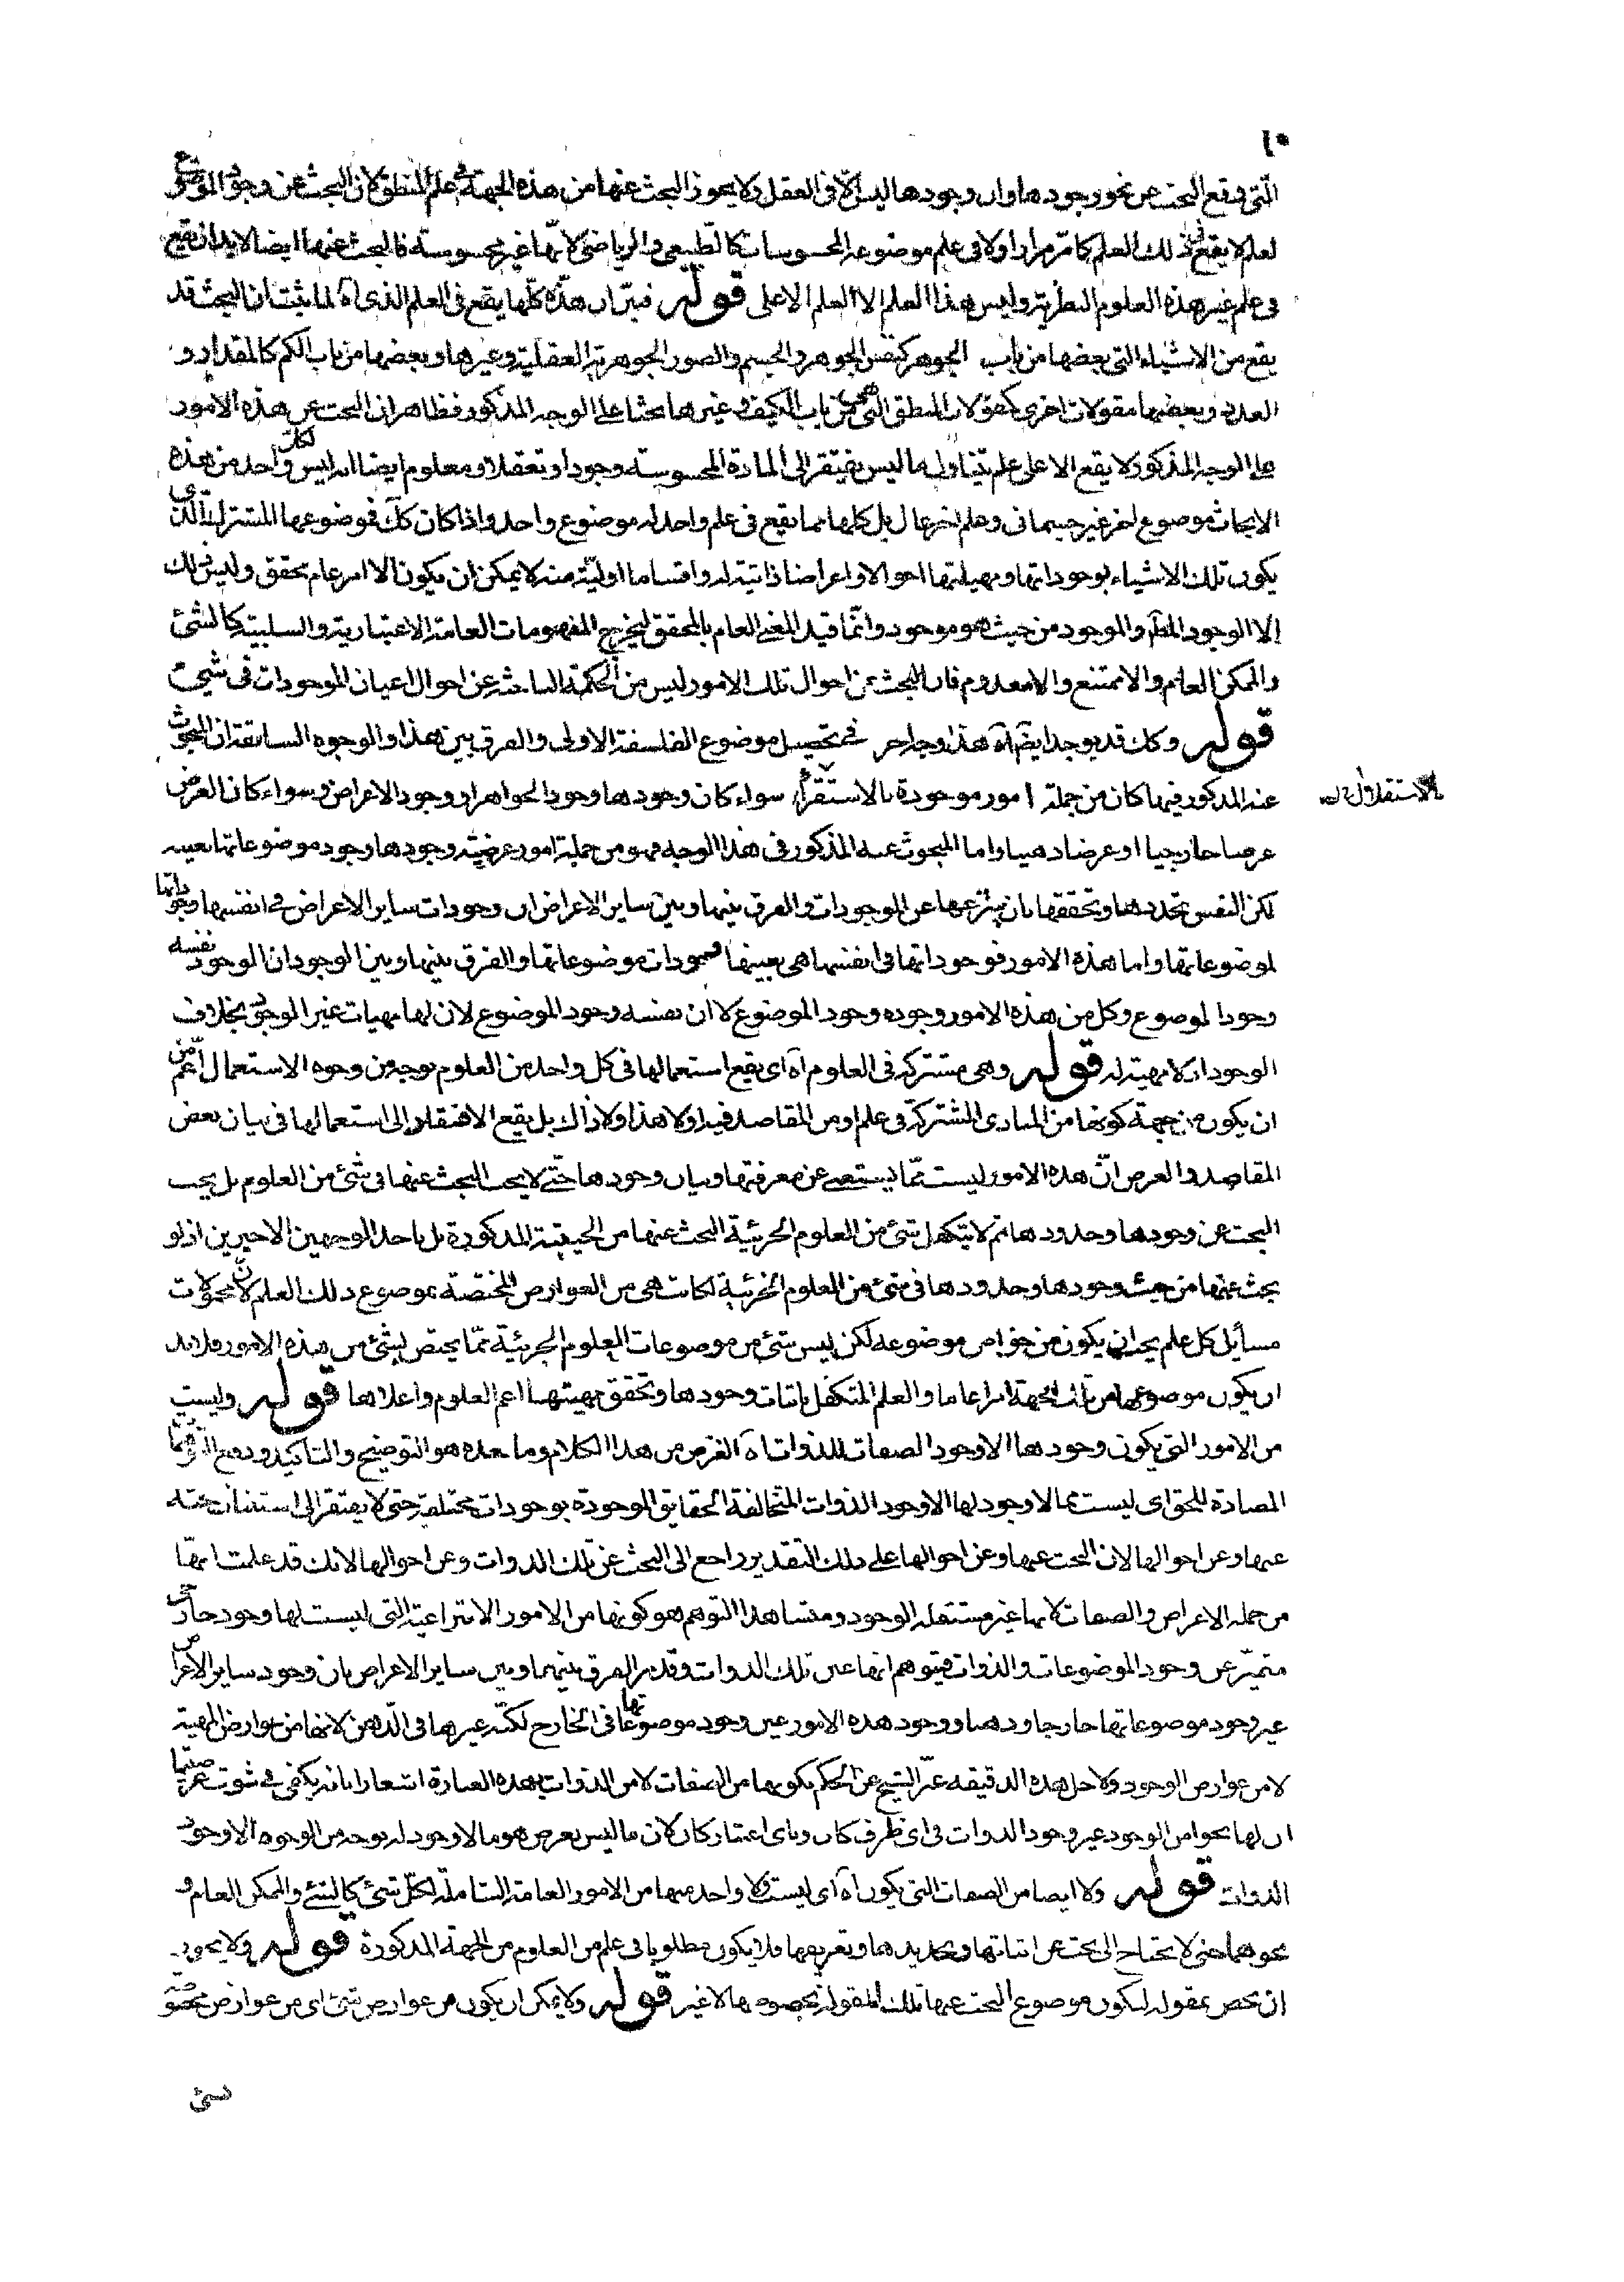 ١٠
الّتى وقع البحث عن نحو وجودها وان وجودها ليس الّا فى العقل ولا يجوز البحث عنها من هذه الجهة فى علم المنطق لان البحث عن وجود الموضوع
لعلم لا يقع فى ذلك العلم كما مرّ مرارا ولا فى علم موضوعه المحسوسات كالطبيعى والرياضى لانّها غير محسوسة فالبحث عنها ايضا لابد ان يقع
فى علم غير هذه العلوم النظرية وليس هذا العلم الا العلم الاعلى قوله فبيّن ان هذه كلّها يقع فى العلم الذى آه لما يثبت ان البحث قد
يقع من الاشياء التى بعضها من باب الجوهر كنفس الجوهر والجسم والصور الجوهرية العقلية وغيرها وبعضها من باب الكم كالمقدار و
العدد وبعضها مقولات اخرى كمقولات المنطق التى هى من باب الكيف وغيرها بحثا على الوجه المذكور فظاهر ان البحث عن هذه الامور
على الوجه المذكور لا يقع الا على علم يتناول ما ليس يفتقر الى المادة المحسوسة وجودا وتعقلا ومعلوم ايضا انه ليس لكل واحد من هذه
الابحاث موضوع اخر غير جسمانى وعلم اخر عال بل كلها مما يقع فى علم واحد له موضوع واحد واذا كان كك فموضوعها المشترك الذى
يكون تلك الاشياء بوجوداتها ومهيلتها احوالا واعراضا ذاتية له واقساما اوليّة منه لا يمكن ان يكون الا امر عام محقق وليس ذلك
الا الوجود المط والموجود من حيث هو موجود وانّما قيد المعنى العام بالمحقق ليخرج المفهومات العامة الاعتبارية والسلبية كالشئ
والممكن العام والا ممتنع والا معدوم فان البحث عن احوال تلك الامور ليس من الحكمة الباحثة عن احوال اعيان الموجودات فى شئ
قوله وكك قد يوجد ايضا آه هذا وجه اخر فى تحصيل موضوع الفلسفة الاولى والفرق بين هذا والوجوه السابقة ان المبحوث
عنه المذكور فيها كان من جملة امور موجودة بالاستقرار سواء كان وجودها وجود الجواهر او وجود الاعراض وسواء كان العرض
بالاستقلال ل
عرضا خارجيا او عرضا ذهنيا واما المبحوث عنه المذكور فى هذا الوجه فهو من جملة امور عرضية وجودها وجود موضوعاتها بعينه
لكن النفس تحددها وتحققها بان ينتزعها عن الموجودات والفرق بينها وبين ساير الاعراض ان وجودات ساير الاعراض فى انفسها وجوداتها
لموضوعاتها واما هذه الامور فوجوداتها فى انفسها هى بعينها وجودات موضوعاتها والفرق بينها وبين الوجود ان الوجود نفسه
وجود الموضوع وكل من هذه الامور وجوده وجود الموضوع لا ان نفسه وجود الموضوع لان لها مهيات غير الوجود بخلاف
الوجود اذ لا مهية له قوله وهى مشتركة فى العلوم آه اى يقع استعمالها فى كل واحد من العلوم بوجه من وجوه الاستعمال اعم من
ان يكون من جهة كونها من المبادى المشتركة فى علم او من المقاصد فيه او لا هذا ولا ذاك بل يقع الافتقار الى استعمالها فى بيان بعض
المقاصد والغرض انّ هذه الامور ليست ممّا يستغنى عن معرفتها وبيان وجودها حتّى لا يجب البحث عنها فى شئ من العلوم بل يجب
البحث عن وجودها وحدودها ثم لا يتكفل شئ من العلوم الجزئية البحث عنها من الحيثية المذكورة بل باحد الوجهين الاخيرين اذ لو
بحث عنها من حيث وجودها وحدودها فى شئ من العلوم الجزئية لكانت هى من العوارض المختصة بموضوع ذلك العلم لان محمولات
مسائل كل علم يجب ان يكون من خواص موضوعه لكن ليس شئ من موضوعات العلوم الجزئية ممّا يختص بشئ من هذه الامور فلابد
ان يكون موضوعها من تلك الجهة امرا عاما والعلم المتكفل باثبات وجودها وتحقق مهيتها اعم العلوم واعلاها قوله وليست
من الامور التى يكون وجودها الا وجود الصفات للذوات آه الغرض من هذا الكلام وما بعده هو التوضيح والتاكيد ودفع التوهمات
المضادة للحق اى ليست مما لا وجود لها الا وجود الذوات المتخالفة الحقايق الموجودة بوجودات مختلفة حتى لا يفتقر الى استيناف بحث
عنها وعن احوالها لان البحث عنها وعن احوالها على ذلك التقدير راجع الى البحث عن تلك الذوات وعن احوالها لانك قد علمت انها
من جملة الاعراض والصفات لانها غير مستقلة الوجود ومنشا هذا التوهم هو كونها من الامور الانتزاعية التى ليست لها وجود خارجى
متميّز عن وجود الموضوعات والذوات فيتوهم انها عين تلك الذوات وقد مر الفرق بينهما وبين ساير الاعراض بان وجود ساير الاعراض
غير وجود موضوعاتها خارجا وذهنا ووجود هذه الامور عين وجود موضوعاتها فى الخارج لكنّه غيرها فى الذّهن لانها من عوارض المهية
لا من عوارض الوجود ولاجل هذه الدقيقة عبّر الشيخ عن الحكم بكونها من الصفات لا من الذوات بهذه العبارة اشعارا بانه يكفى فى ثبوت عرضيتها
ان لها نحوا من الوجود غير وجود الذوات فى اى ظرف كان وباى اعتبار كان لان ما ليس بعرض هو ما لا وجود له بوجه من الوجوه الا وجود
الذوات قوله ولا ايضا من الصفات التى يكون آه اى ليست ولا واحد منها من الامور العامة الشاملة لكلّ شئ كالشئ والممكن العام و
نحوهما حتى لا يحتاج الى بحث عن اثباتها وتحديدها وتعريفها فلا يكون مطلوبا فى علم من العلوم من الجهة المذكورة قوله ولا يجوز
ان يختص بمقولة ليكون موضوع البحث عنها تلك المقولة بخصوصها لا غير قوله ولا يمكن ان يكون من عوارض شئ اى من عوارض مخصوصة
لشئ